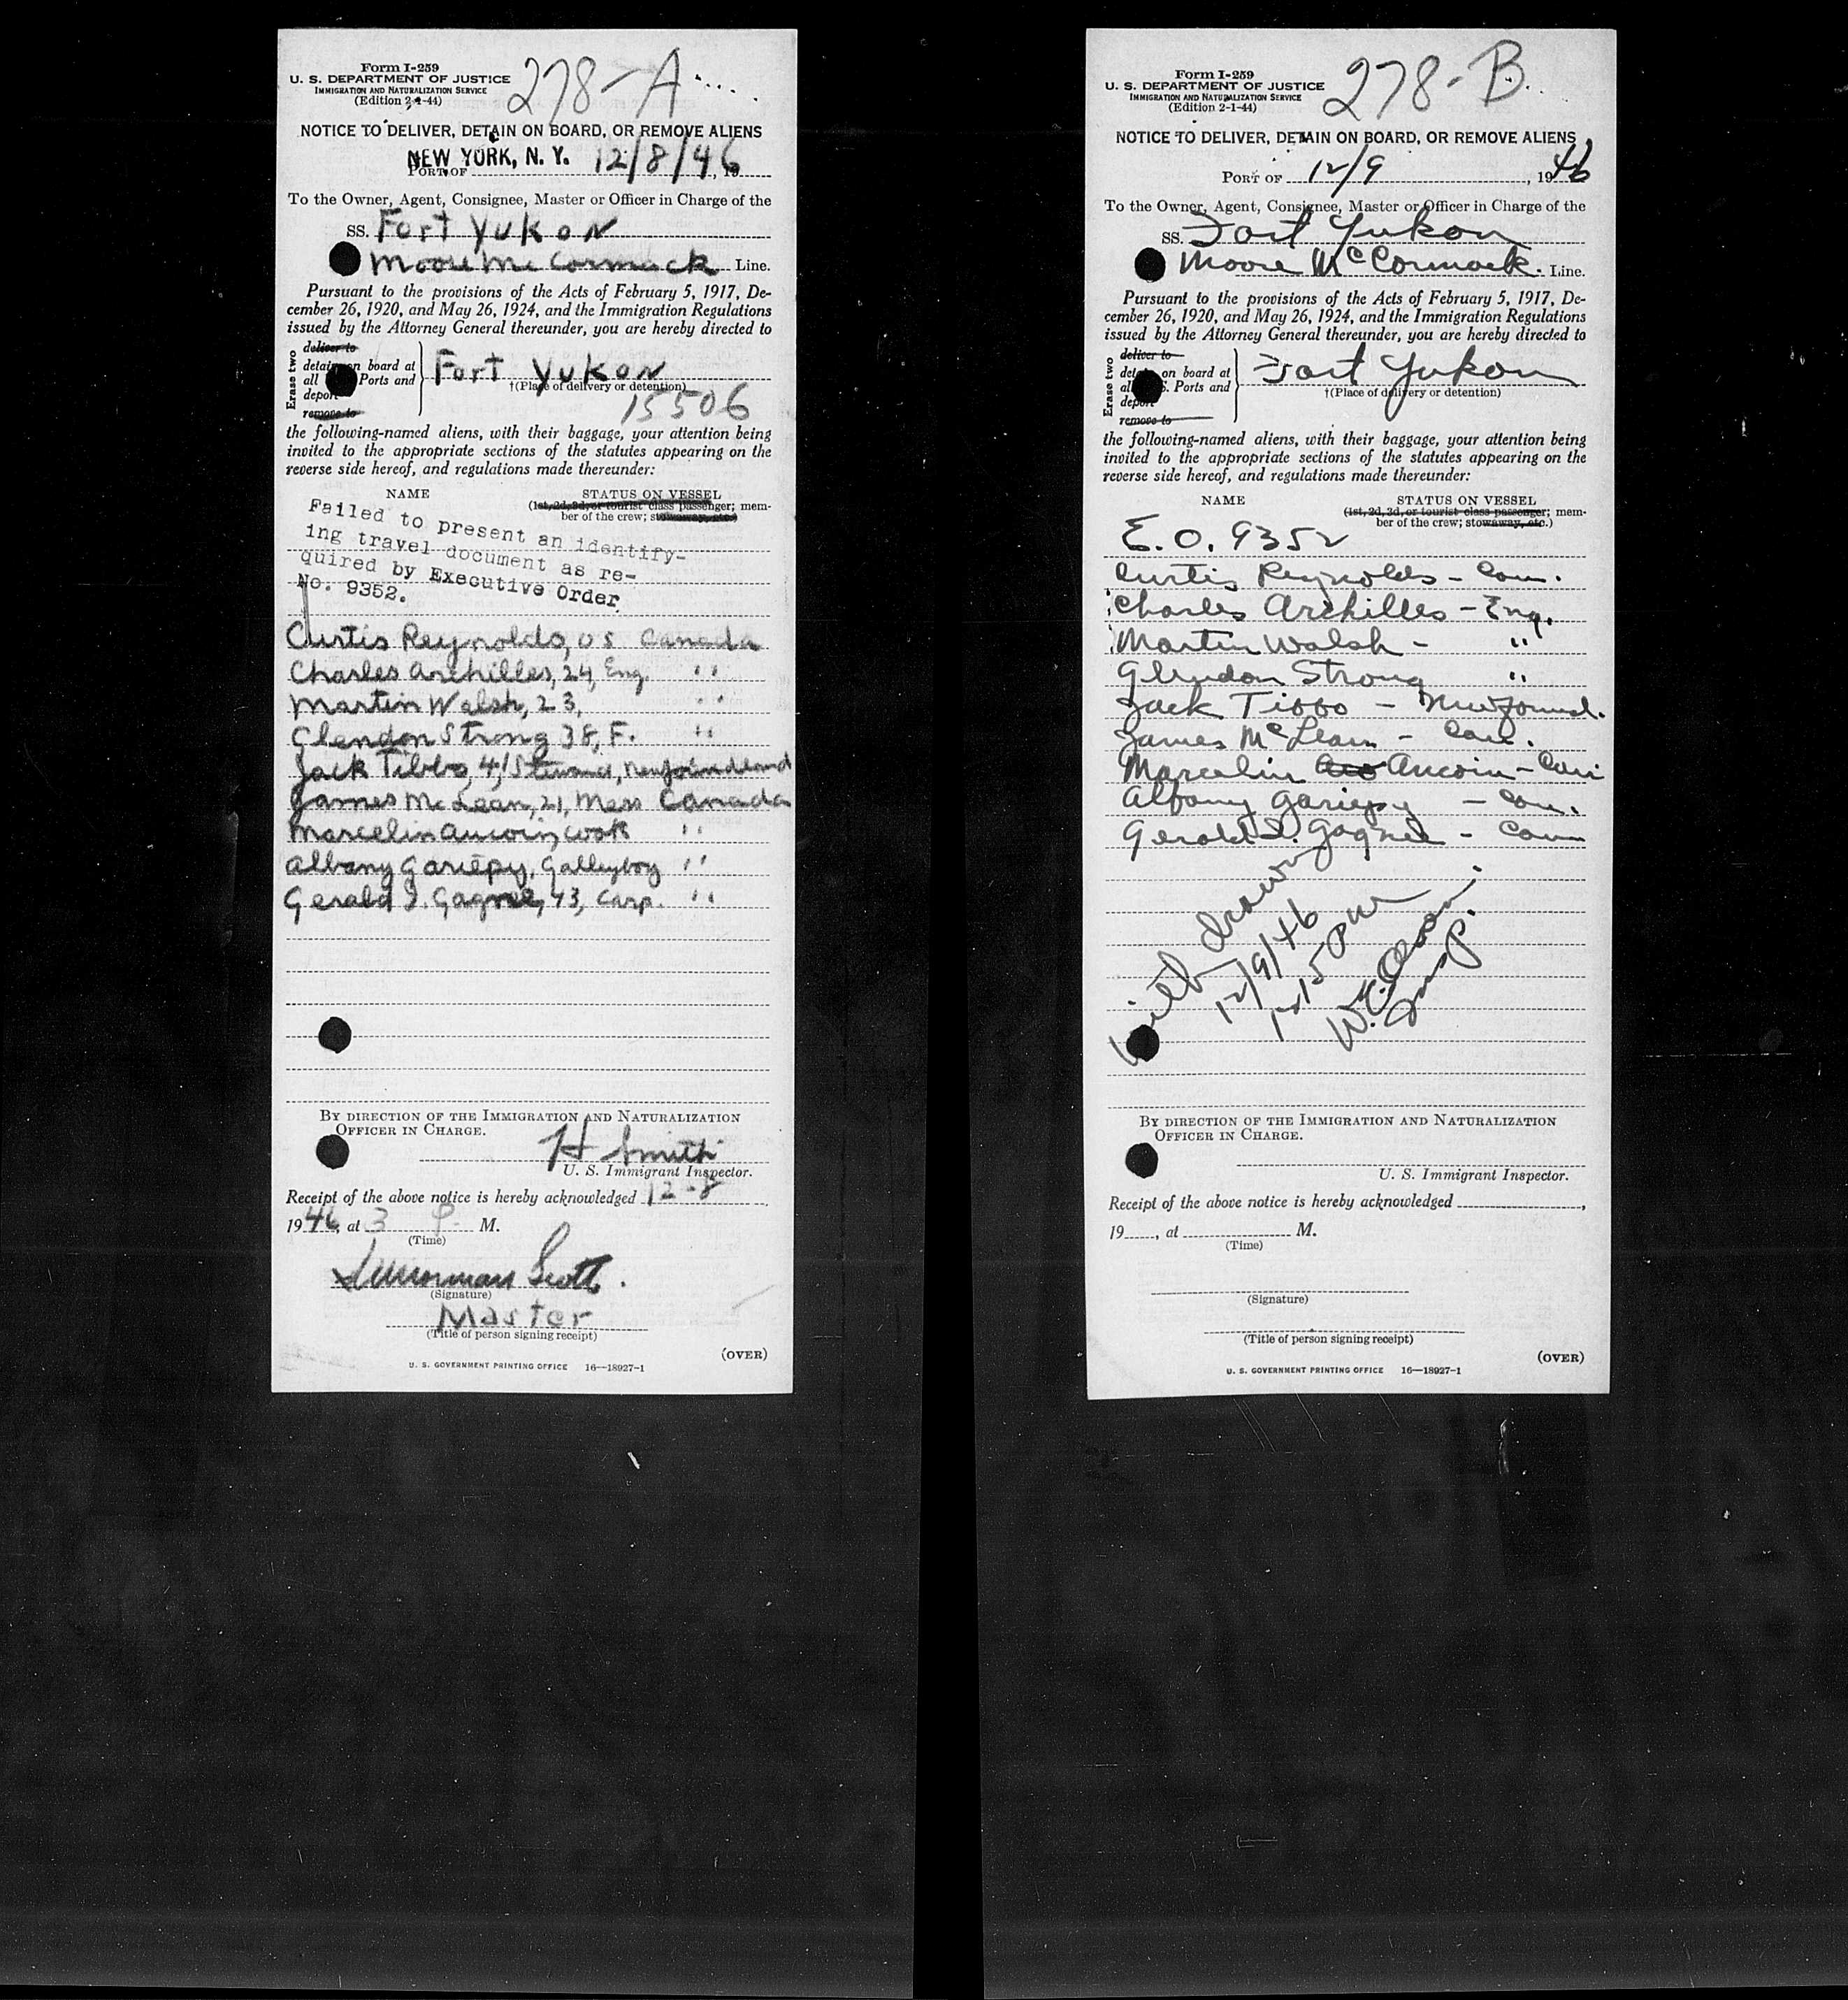 Form I-259
U. S. DEPARTMENT OF JUSTICE
IMMIGRATION AND NATURALIZATION SERVICE
(Edition 2-1-44)
278-A
NOTICE TO DELIVER, DETAIN ON BOARD, OR REMOVE ALIENS
NEW YORK, N. Y. 12/8/46
PORT OF , 19
To the Owner, Agent, Consignee, Master or Officer in Charge of the
SS. Fort Yukon
Moore McCormack Line.
Pursuant to the provisions of the Acts of February 5, 1917, De-
cember 26, 1920, and May 26, 1924, and the Immigration Regulations
issued by the Attorney General thereunder, you are hereby directed to
Erase two
deliver to
detain on board at
all Ports and
deport
remove to
Fort Yukon
†(Place of delivery or detention)
15506
the following-named aliens, with their baggage, your attention being
invited to the appropriate sections of the statutes appearing on the
reverse side hereof, and regulations made thereunder:
NAME STATUS ON VESSEL
(1st, 2d, 3d, or tourist class passenger; mem-
ber of the crew; stowaway, etc.)
Failed to present an identify-
ing travel document as re-
quired by Executive Order
No. 9352.
Curtis Reynolds, OS Canada
Charles Archilles, 24, Eng. "
Martin Walsh, 23, "
Glendon Strong 38, F. "
Jack Tibbo, 41 Steward, Newfoundland
James McLean, 21, Mess Canada
Marcelin Aucoin, Cook "
Albany Gariepy, Galleyboy "
Gerald I. Gagnee, 43, Carp. "
BY DIRECTION OF THE IMMIGRATION AND NATURALIZATION
OFFICER IN CHARGE.
H Smith
U. S. Immigrant Inspector.
Receipt of the above notice is hereby acknowledged 12-8,
1946, at 3 P. M.
(Time)
Scott.
(Signature)
Master
(Title of person signing receipt)
(OVER)
U. S. GOVERNMENT PRINTING OFFICE 16—18927-1
Form I-259
U. S. DEPARTMENT OF JUSTICE
IMMIGRATION AND NATURALIZATION SERVICE
(Edition 2-1-44)
278-B
NOTICE TO DELIVER, DETAIN ON BOARD, OR REMOVE ALIENS
PORT OF 12/9, 1946
To the Owner, Agent, Consignee, Master or Officer in Charge of the
SS. Fort Yukon
Moore McCormack Line.
Pursuant to the provisions of the Acts of February 5, 1917, De-
cember 26, 1920, and May 26, 1924, and the Immigration Regulations
issued by the Attorney General thereunder, you are hereby directed to
Erase two
deliver to
detain on board at
all S. Ports and
deport
remove to
Fort Yukon
†(Place of delivery or detention)
the following-named aliens, with their baggage, your attention being
invited to the appropriate sections of the statutes appearing on the
reverse side hereof, and regulations made thereunder:
NAME STATUS ON VESSEL
(1st, 2d, 3d, or tourist class passenger; mem-
ber of the crew; stowaway, etc.)
E.O. 9352
Curtis Reynolds - Can.
Charles Archilles - Eng.
Martin Walsh - "
Glendon Strong "
Jack Tibbo - Newfound.
James McLean - Can.
Marcelin Aucoin - Can
Albany Gariepy - Can.
Gerald I. Gagnee - Can
Withdrawn
12/9/46
1215 PM
W.C. Olson
Insp.
BY DIRECTION OF THE IMMIGRATION AND NATURALIZATION
OFFICER IN CHARGE.
U. S. Immigrant Inspector.
Receipt of the above notice is hereby acknowledged ,
19 , at M.
(Time)
(Signature)
(Title of person signing receipt)
(OVER)
U. S. GOVERNMENT PRINTING OFFICE 16—18927-1